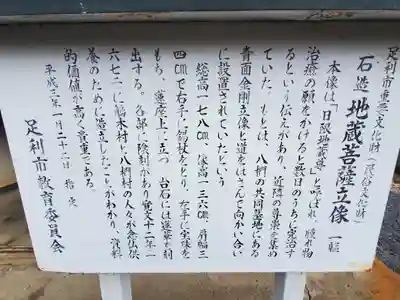 足利市重要文化財（民俗文化財）
石造地蔵菩薩立像　一軀
本像は「日限地蔵尊」と呼ばれ、腫れ物
治療の願をかけると数日のうちに完治す
るという伝えがあり、近隣の尊崇を集め
ていた。もとは、八椚の共同墓地にある
青面金剛立像と道をはさんで向かい合い
に設置されていたという
総高一七八㎝、像高一三六㎝、肩幅三
四㎝で右手に錫杖をとり、左手に宝珠を
もち、蓮座上に立つ　台石には蓮華を刻
出する。各部に陰刻があり寛文十二年一
六七二に
木村と八椚村の人々が念仏供
養のために造立したことがわかり、資料
的価値が高く貴重である。
平成二年一月二十二日　指定
足利市教育委員会